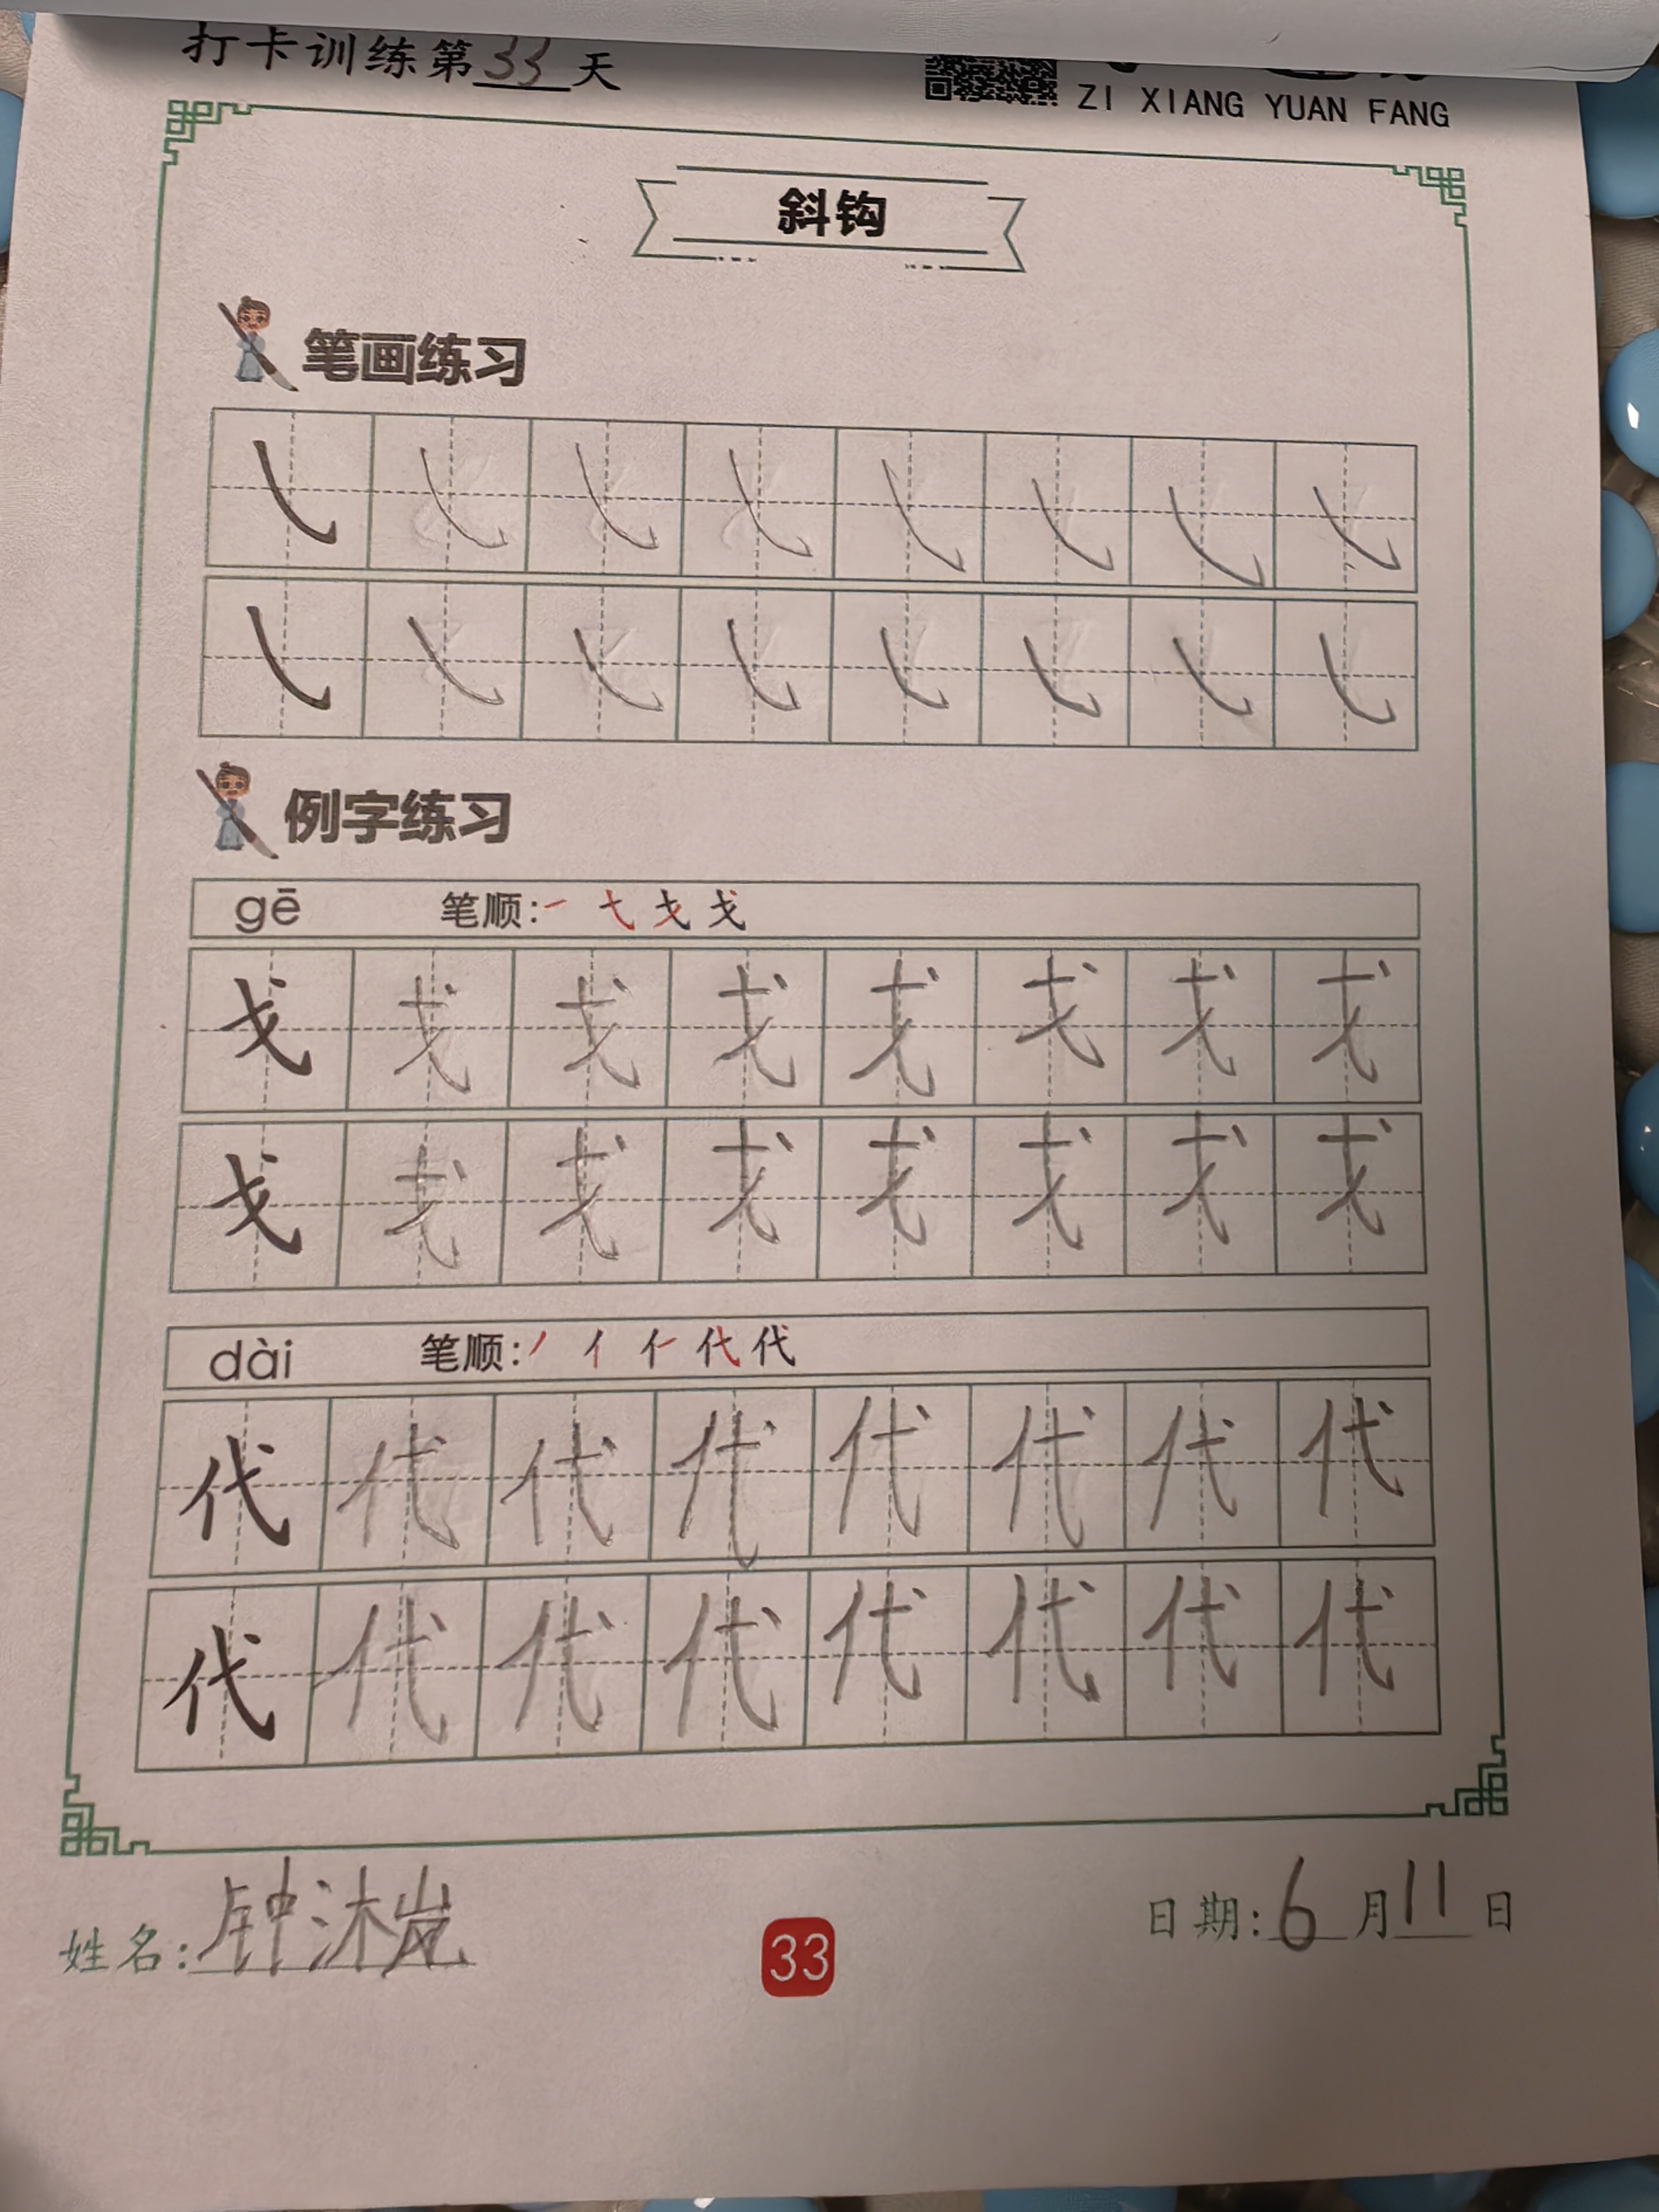 打卡训练第33天
ZI XIANG YUAN FANG
斜钩
笔画练习
㇂ ㇂ ㇂ ㇂ ㇂ ㇂ ㇂ ㇂
㇂ ㇂ ㇂ ㇂ ㇂ ㇂ ㇂ ㇂
例字练习
gē 笔顺: 一 弋 戈 戈
戈 戈 戈 戈 戈 戈 戈 戈
戈 戈 戈 戈 戈 戈 戈 戈
dài 笔顺: 丿 亻 仁 代 代
代 代 代 代 代 代 代 代
代 代 代 代 代 代 代 代
姓名: 钟沐岚
33
日期: 6月11日